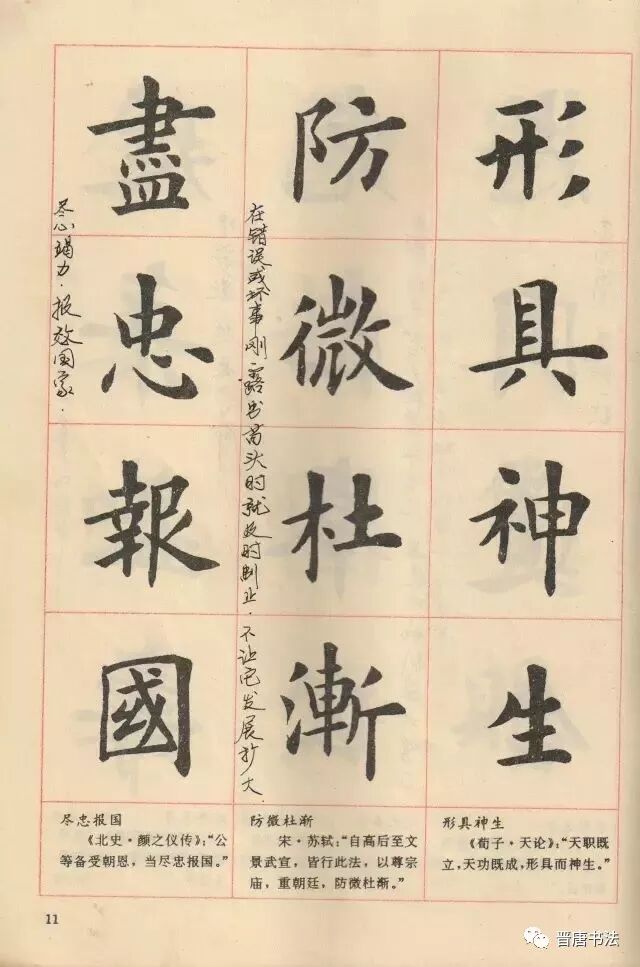 形具神生
防微杜漸
在错误或坏事刚露出苗头时就及时制止．不让它发展扩大．
盡忠報國
尽心竭力．报效国家．
形具神生
《荀子·天论》：“天职既
立，天功既成，形具而神生。”
防微杜渐
宋·苏轼：“自高后至文
景武宣，皆行此法，以尊宗
庙，重朝廷，防微杜渐。”
尽忠报国
《北史·颜之仪传》：“公
等备受朝恩，当尽忠报国。”
11
晋唐书法